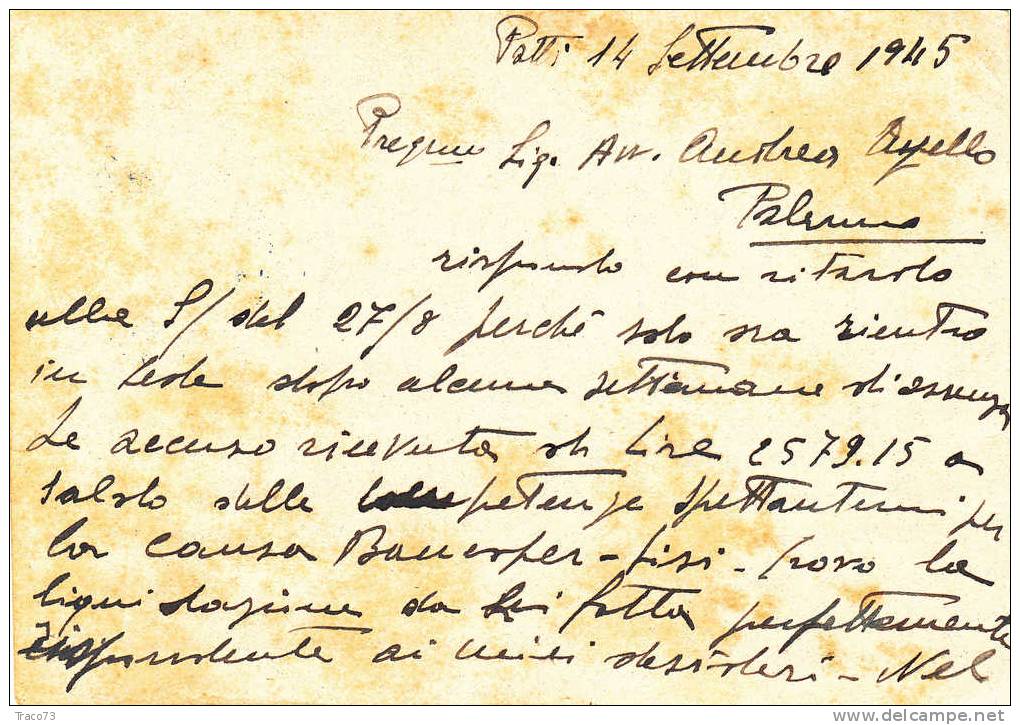 Patti 14 Settembre 1945
Pregmo Sig. Avv. Andrea Ayello
Palermo
rispondo con ritardo
alla S/ del 27/8 perché solo ora rientro
in sede dopo alcune settimane di assenza
Le accuso ricevuta di Lire 2579.15 a
saldo delle competenze spettantemi per
la causa - Fisi - Trovo la
liquidazione da Lei fatta perfettamente
rispondente ai miei desideri - Nel
Traco73
delcampe.net